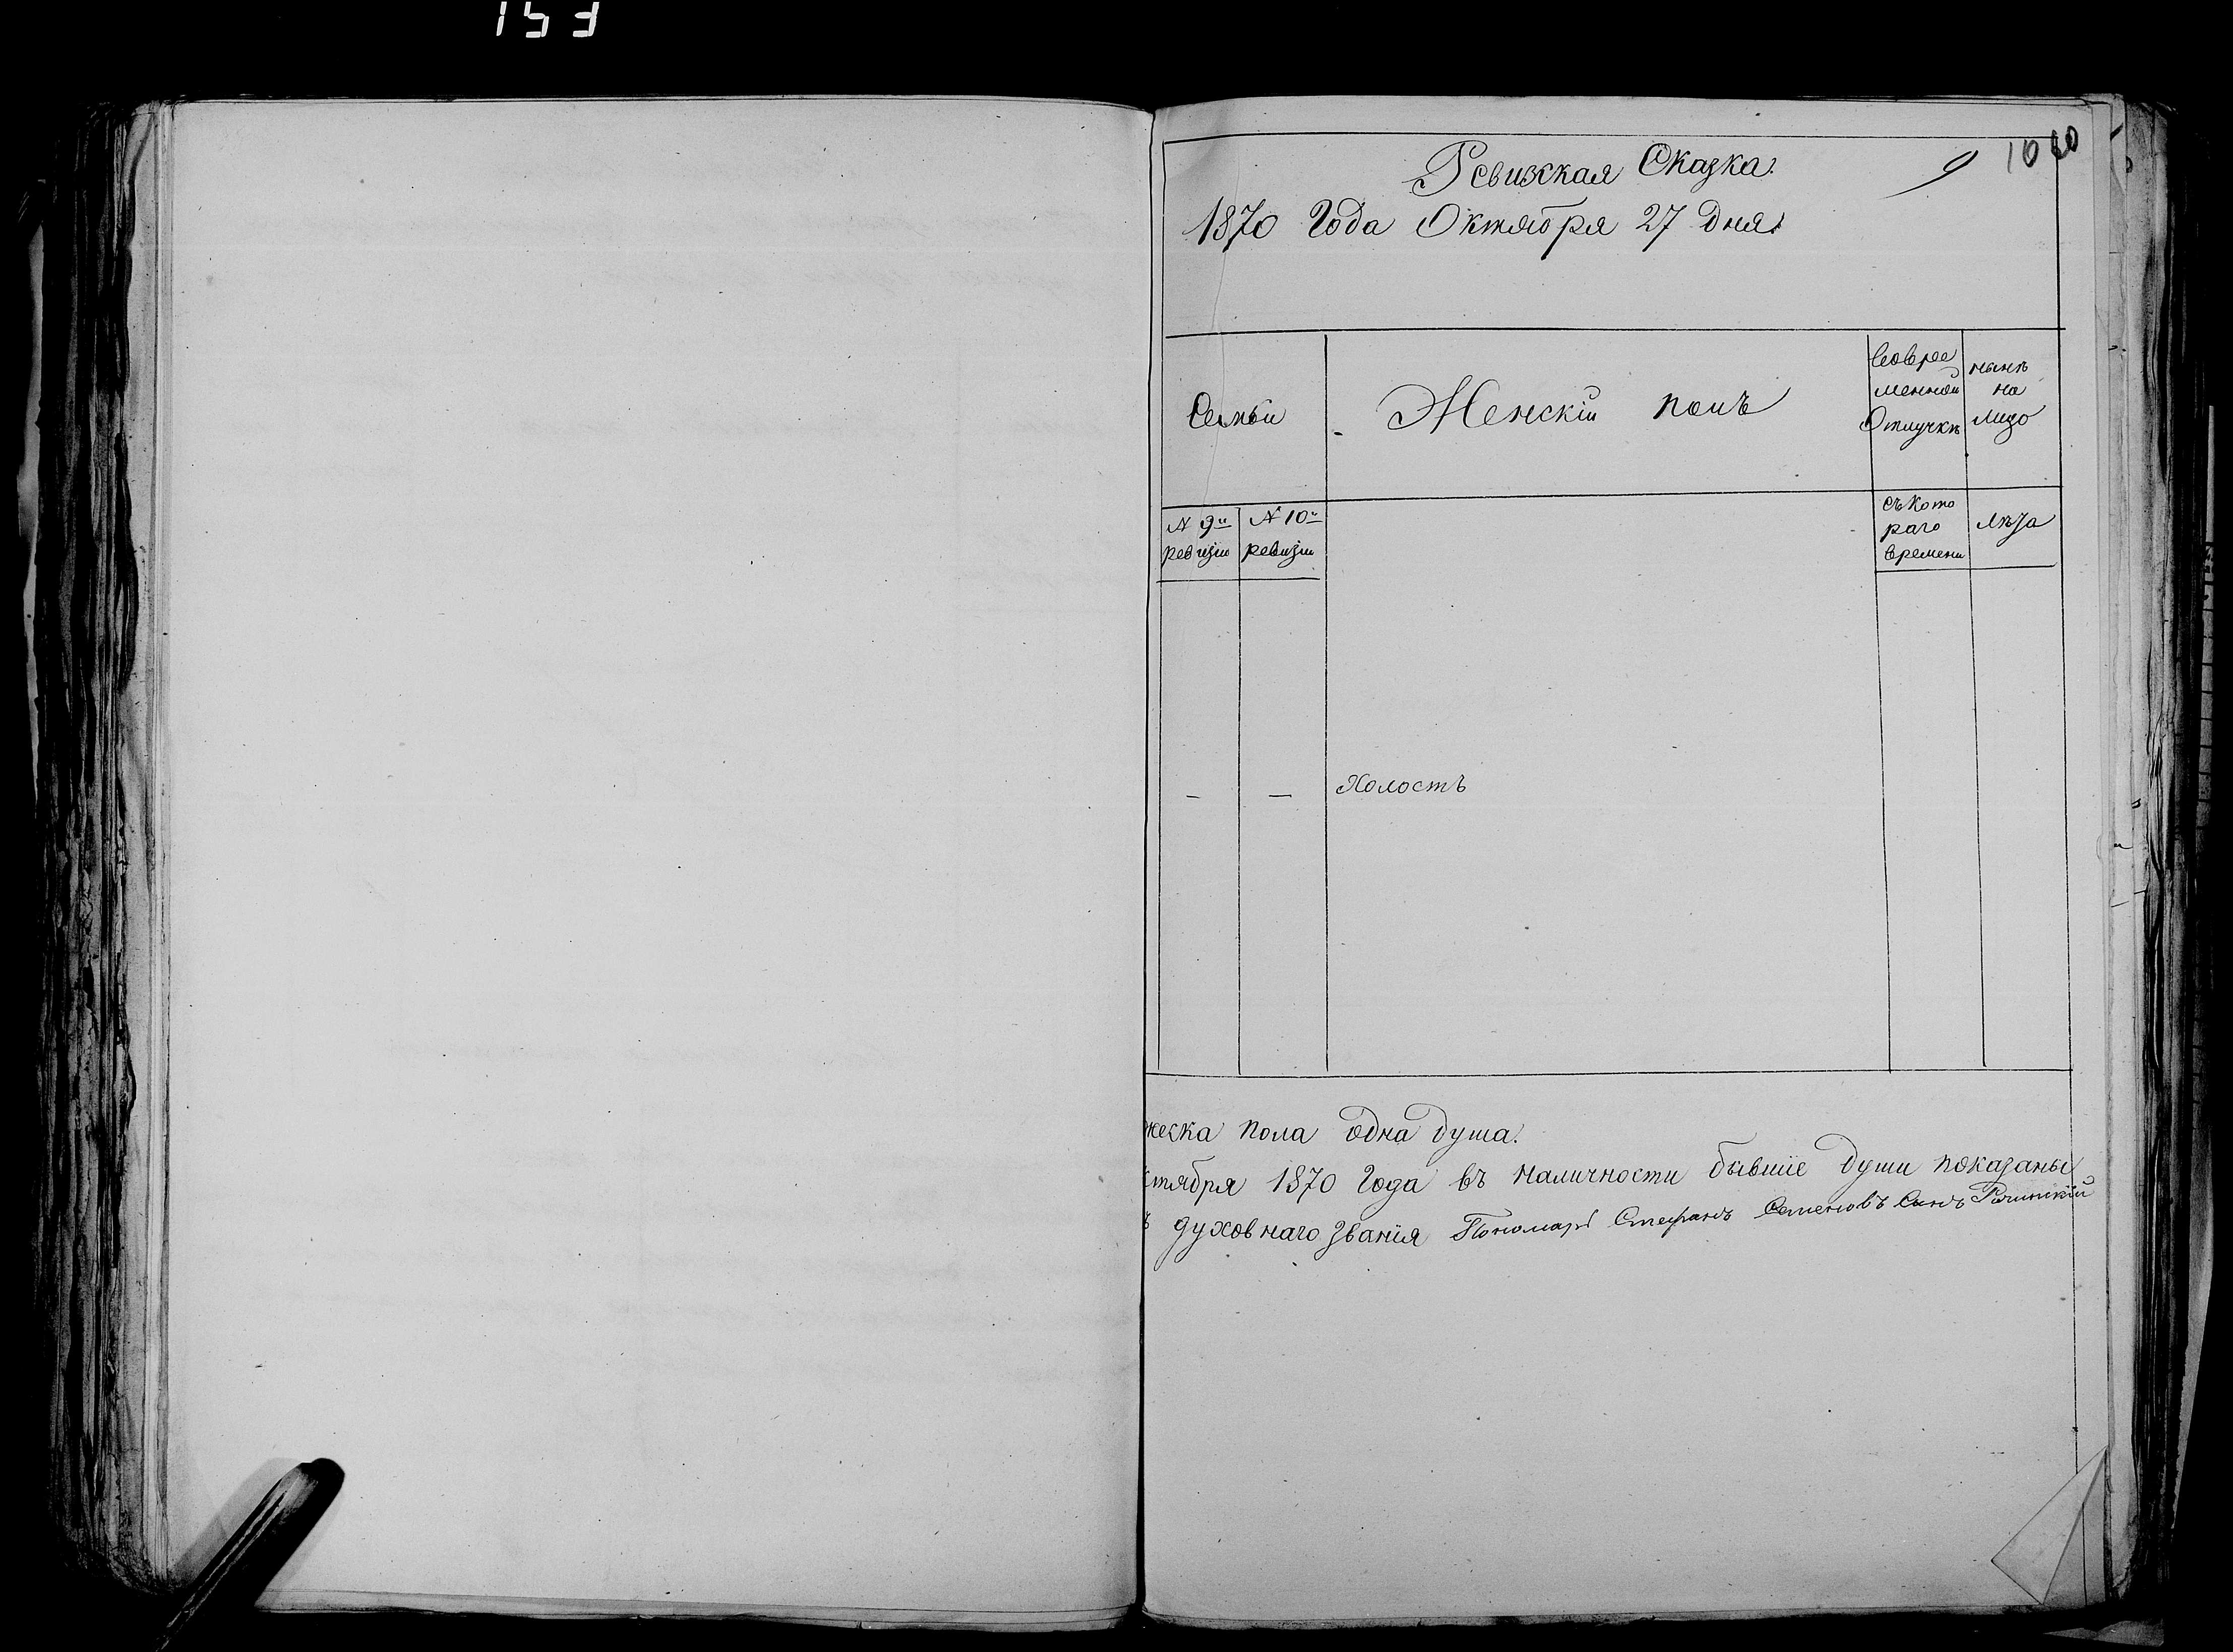 153
Ревизская Сказка.
9 10 60
1870 Года Октября 27 дня.
Семьи
Женскій полъ
Вовре
менной
Отлучкѣ
нынѣ
на
лицо
N 9й
ревизіи
N 10й
ревизіи
съ кото
раго
времени
Лѣта
— — Холостъ
жеска пола одна душа.
ктября 1870 Года въ наличности бывшіе души показаны
ъ духовнаго званія Пономарь Стефанъ Семеновъ Сынъ